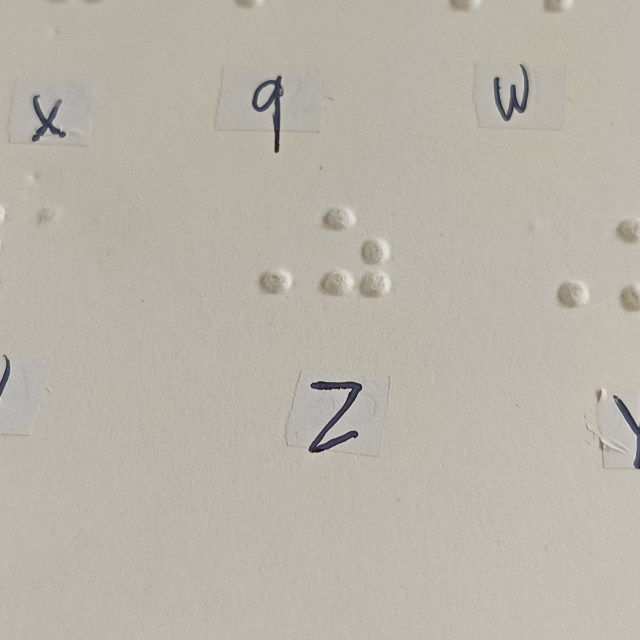 x q w
⠠⠵
Z Y